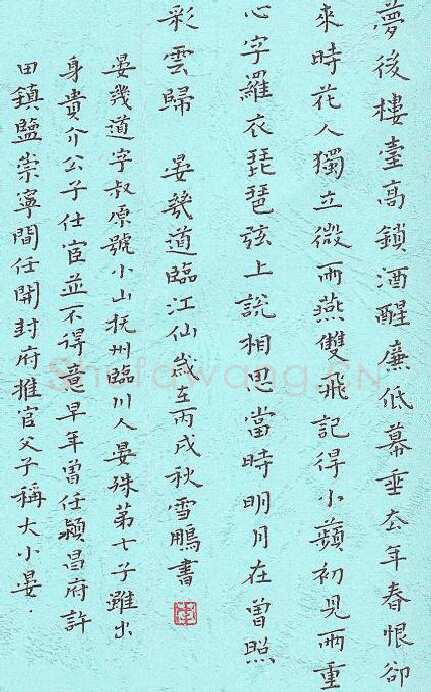 夢後樓臺高鎖酒醒簾低幕垂去年春恨卻
來時花人獨立微雨燕雙飛記得小蘋初見兩重
心字羅衣琵琶弦上說相思當時明月在曾照
彩雲歸 晏幾道臨江仙歲在丙戌秋雪鵬書
晏幾道字叔原號小山抚州臨川人晏殊第七子雖出
身貴介公子仕宦並不得意早年曾任潁昌府許
田鎮鹽崇寧間任開封府推官父子稱大小晏.
Shufawang.CN